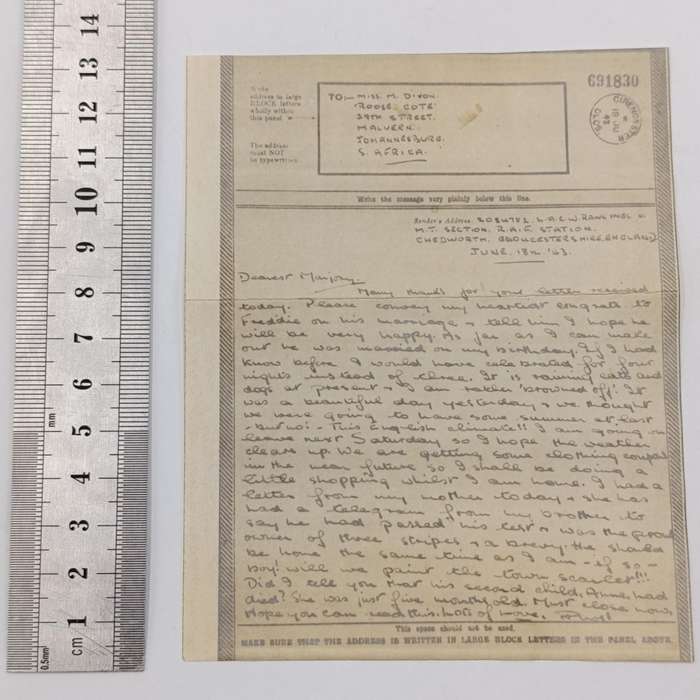 14
13
12
11
10
9
8
7
6
5
4
3
2
1
mm
0.5mm
cm
691830
CIRENCESTER
GLOS
Write the
address in large
BLOCK letters
wholly within
this panel
The address
must NOT
be typewritten
TO:- MISS. M. DIXON.
"ROOSE COTE"
STREET.
MALVERN.
JOHANNESBURG.
S. AFRICA.
Write the message very plainly below this line.
Sender's Address L.A.C.W. RAWLINGS
M.T. SECTION, R.A.F. STATION.
CHEDWORTH, GLOUCESTERSHIRE, ENGLAND
JUNE. 18th. '43.
Dearest Marjory,
Many thanks for your letter received
today. Please convey my heartiest congrats to
Freddie on his marriage & tell him I hope he
will be very happy. As far as I can make
out he was married on my birthday. If I had
know before I would have celebrated for four
nights instead of three. It is raining cats and
dogs at present & I am rather 'browned off'. It
was a beautiful day yesterday & we thought
we were going to have some summer at last
- but no! - This English climate!! I am going on
leave next Saturday so I hope the weather
clears up. We are getting some clothing coupons
in the near future so I shall be doing a
little shopping whilst I am home. I had a
letter from my mother today & she has
had a telegram from my brother to
say he had passed his test & was the proud
owner of three stripes & a brevy. He should
be home the same time as I am - if so -
boy! will we paint the town scarlet!!!
Did I tell you that his second child, Anne, had
died? She was just five months old. Must close now.
Hope you can read this. Lots of love,
This space should not be used.
MAKE SURE THAT THE ADDRESS IS WRITTEN IN LARGE BLOCK LETTERS IN THE PANEL ABOVE.